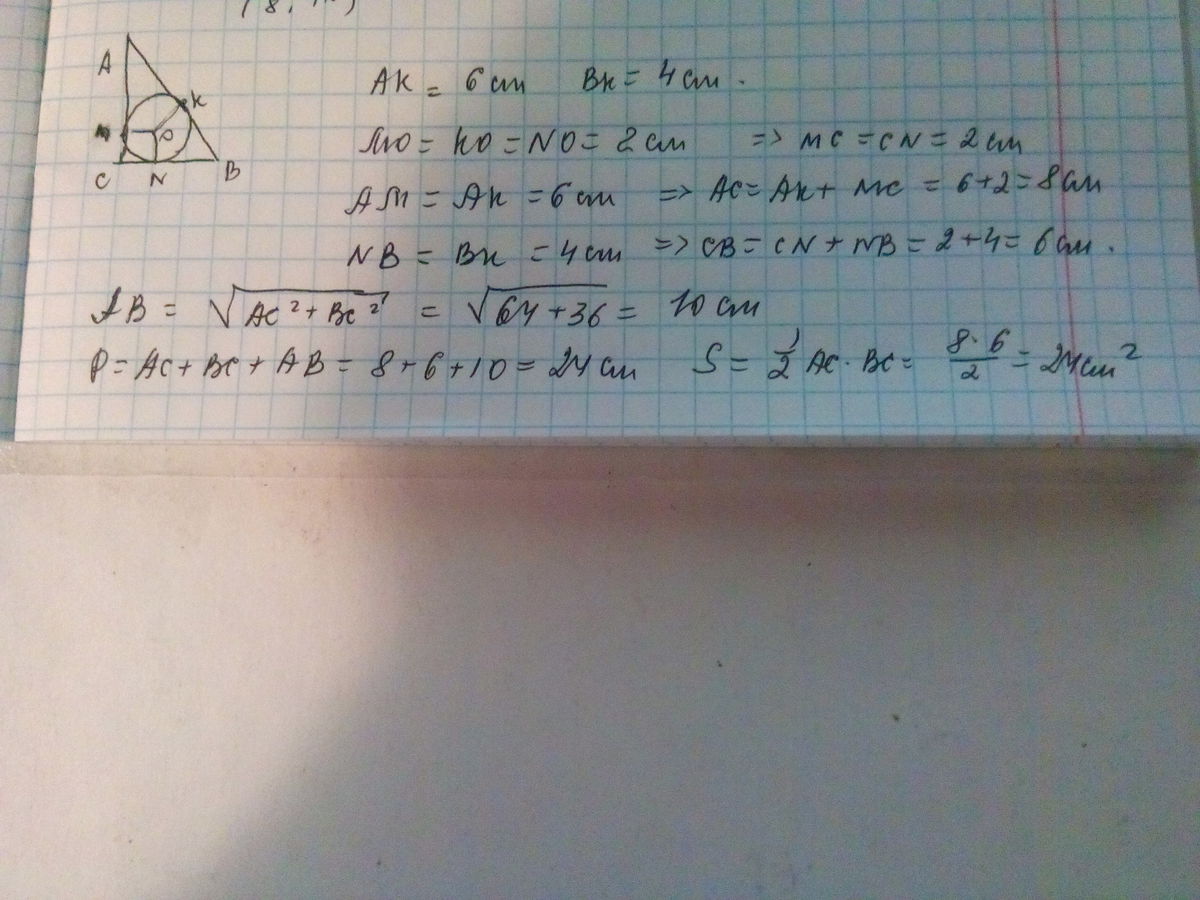 A
K
M
O
C N B
AK = 6 см BK = 4 см.
MO = KO = NO = 2 см => MC = CN = 2 см
AM = AK = 6 см => AC = AK + MC = 6+2 = 8 см
NB = BK = 4 см => CB = CN + NB = 2+4 = 6 см.
AB = √(AC² + BC²) = √(64+36) = 10 см
P = AC + BC + AB = 8+6+10 = 24 см S = 1/2 AC · BC = 8·6/2 = 24 см²